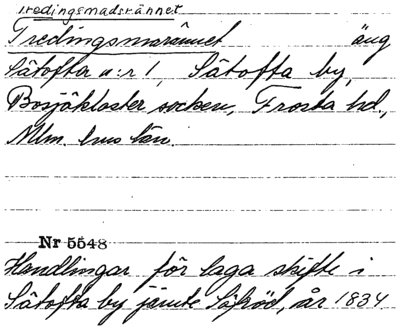 Tredingsmadsrännet
Tredingsmarännet äng
Sätofta n:r 1, Sätofta by,
Bosjökloster socken, Frosta hd.,
Mlm. hus län.
Nr 5548
Handlingar för laga skifte i
Sätofta by jämte Säfröd, år 1834